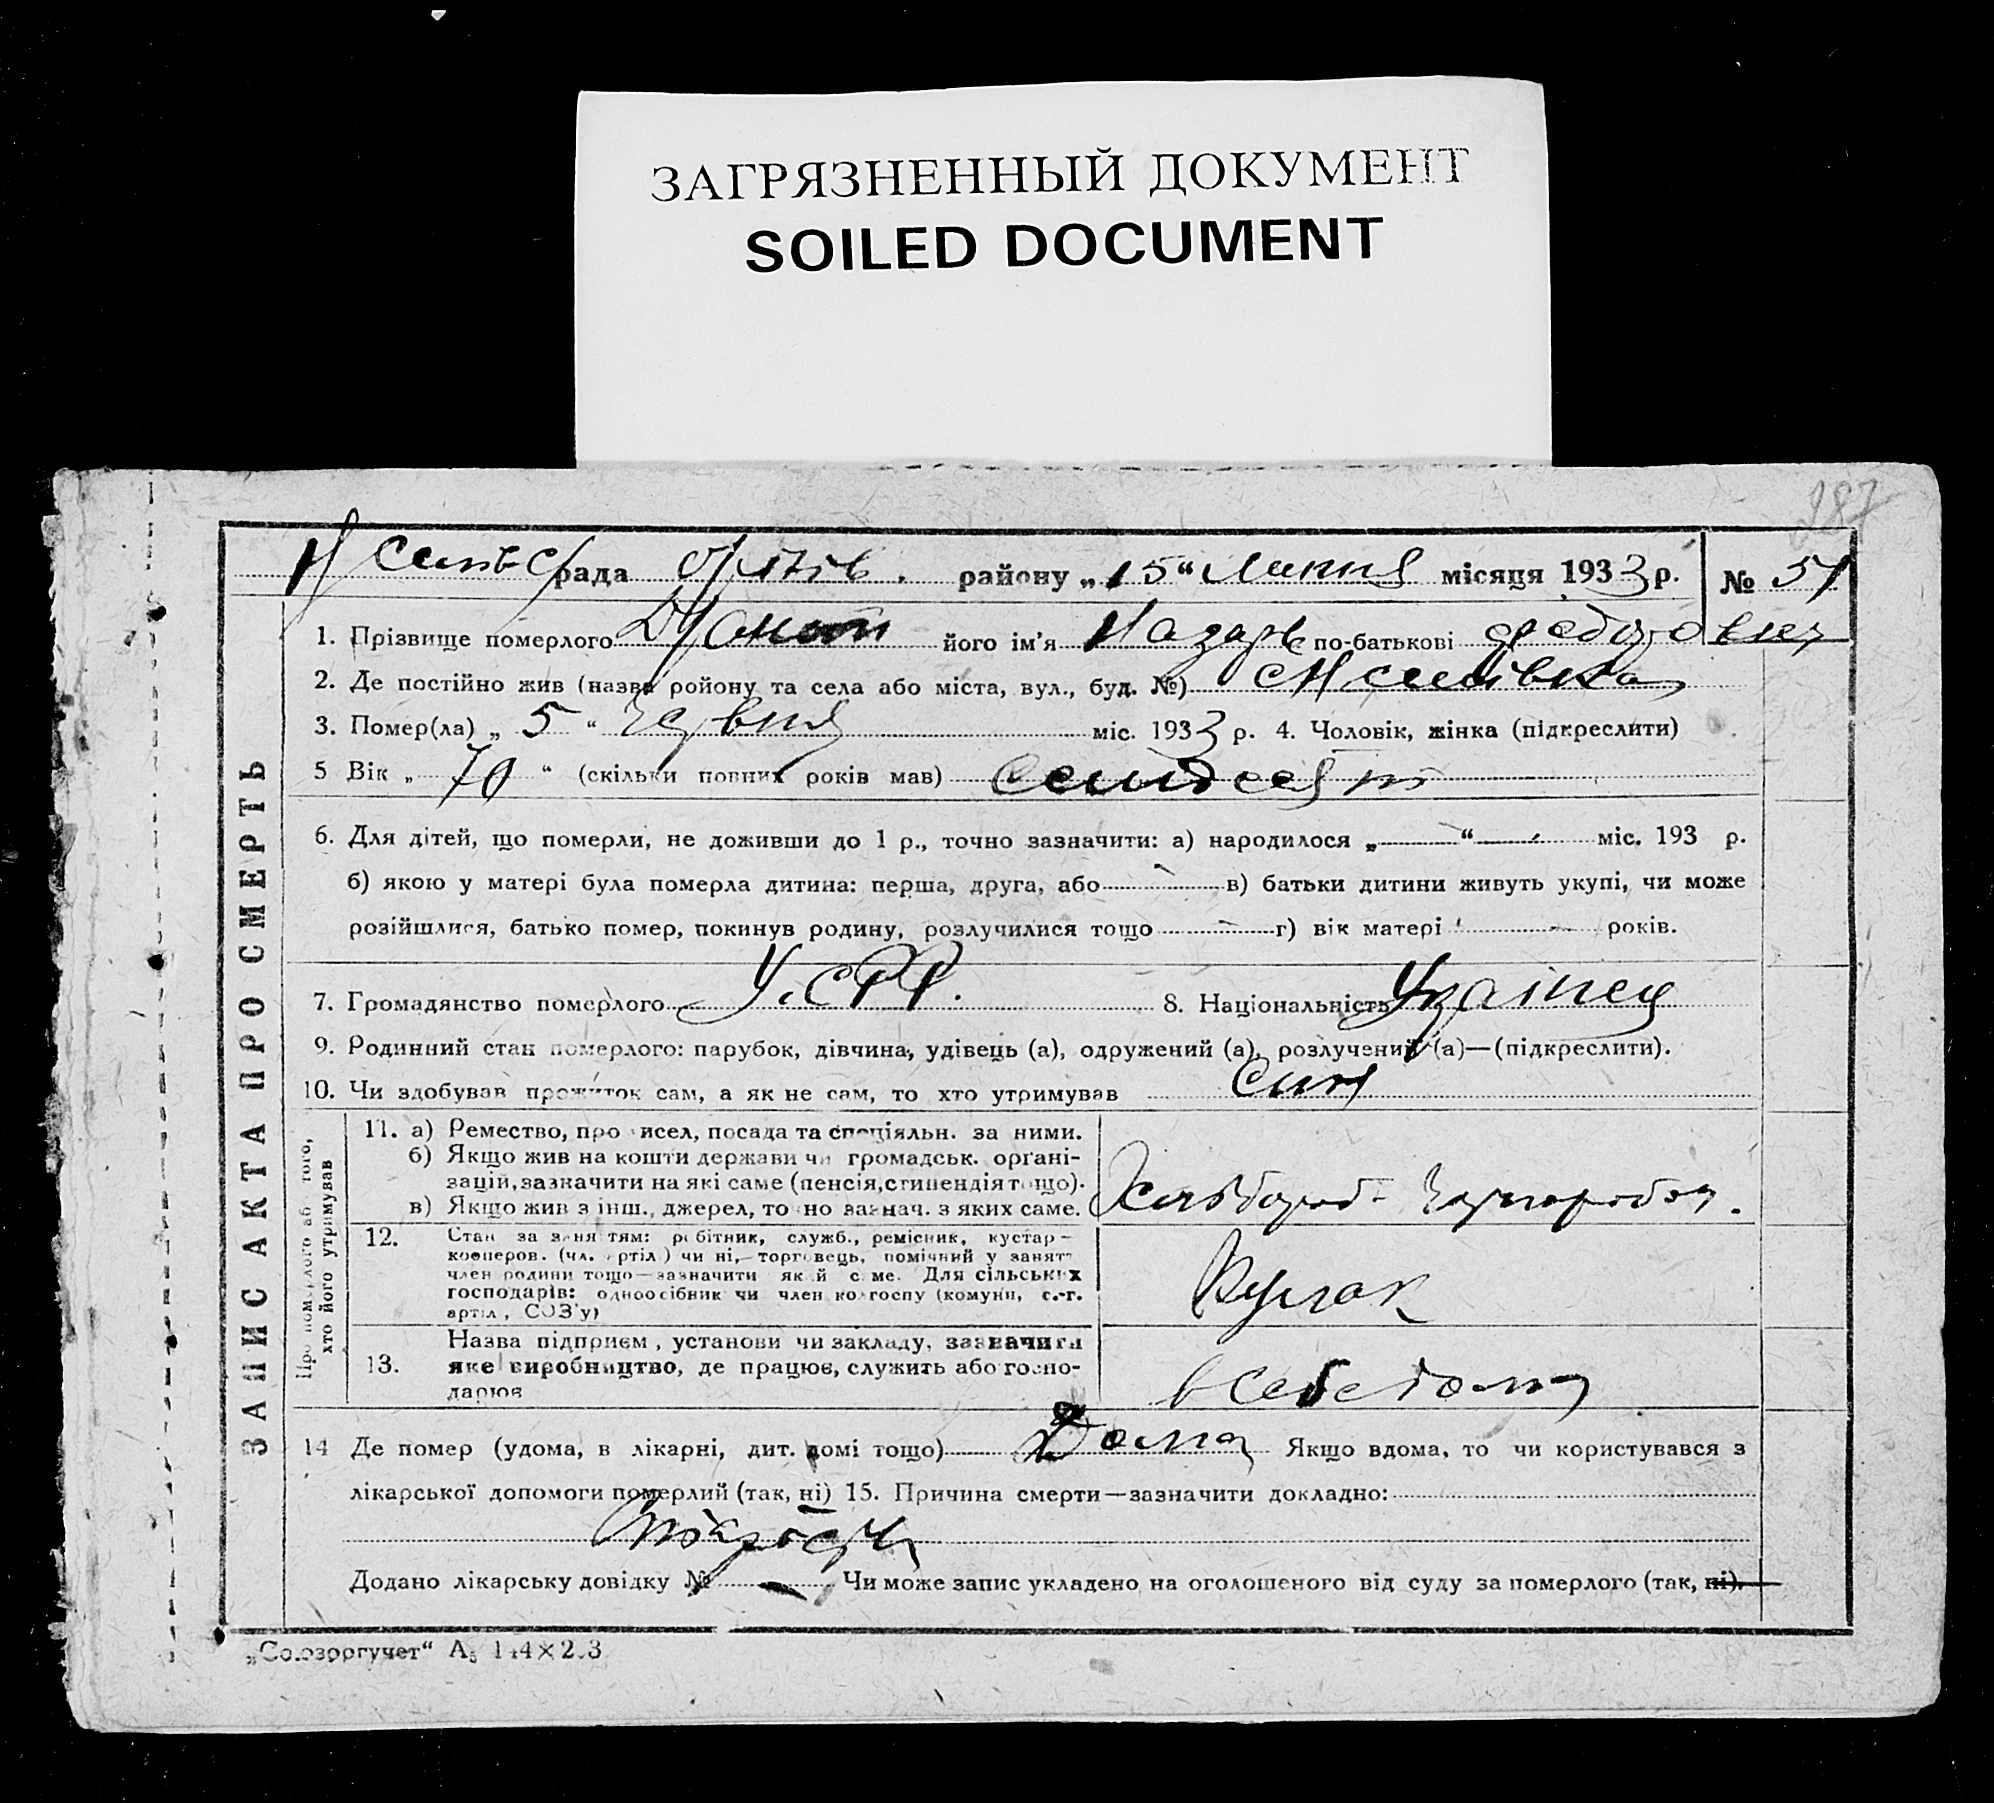 ЗАГРЯЗНЕННЫЙ ДОКУМЕНТ
SOILED DOCUMENT
287
рада району „15“ Липня місяця 1933 р. № 51
ЗАПИС АКТА ПРО СМЕРТЬ
1. Прізвище померлого його ім'я Назарь по-батькові Федотович
2. Де постійно жив (назва ройону та села або міста, вул., буд. №)
3. Помер(ла) „5“ Червня міс. 1933 р. 4. Чоловік, жінка (підкреслити)
5 Вік „70“ (скільки повних років мав) Семдесят
6. Для дітей, що померли, не доживши до 1 р., точно зазначити: а) народилося „—“ — міс. 193 р.
б) якою у матері була померла дитина: перша, друга, або — в) батьки дитини живуть укупі, чи може
розійшлися, батько помер, покинув родину, розлучилися тощо — г) вік матері — років.
7. Громадянство померлого У.С.Р.Р. 8. Національність Украінец
9. Родинний стан померлого: парубок, дівчина, удівець (а), одружений (а), розлучений (а)—(підкреслити).
10. Чи здобував прожиток сам, а як не сам, то хто утримував Син
Про померлого або того, хто його утримував
11. а) Ремество, промисел, посада та спеціяльн. за ними.
б) Якщо жив на кошти держави чи громадськ. органі-
зацій, зазначити на які саме (пенсія, стипендія тощо).
в) Якщо жив з інш., джерел, точно зазнач. з яких саме.
Хлібороб-
12. Стан за заняттям: робітник, служб., ремісник, кустар-
кооперов. (чл. артіл.) чи ні,—торговець, помічний у занятт
член родини тощо—зазначити який саме. Для сільських
господарів: одноосібник чи член колгоспу (комуни, с.-г.
артіл., СОЗ'у)
Кулак
13. Назва підприєм., установи чи закладу, зазначити
яке виробництво, де працює, служить або госпо-
дарює
в себе дома
14 Де помер (удома, в лікарні, дит. домі тощо) Дома Якщо вдома, то чи користувався з
лікарської допомоги померлий (так, ні) 15. Причина смерти—зазначити докладно:
Додано лікарську довідку № — Чи може запис укладено на оголошеного від суду за померлого (так, ні).
„Союзоргучет“ А₅ 144×203